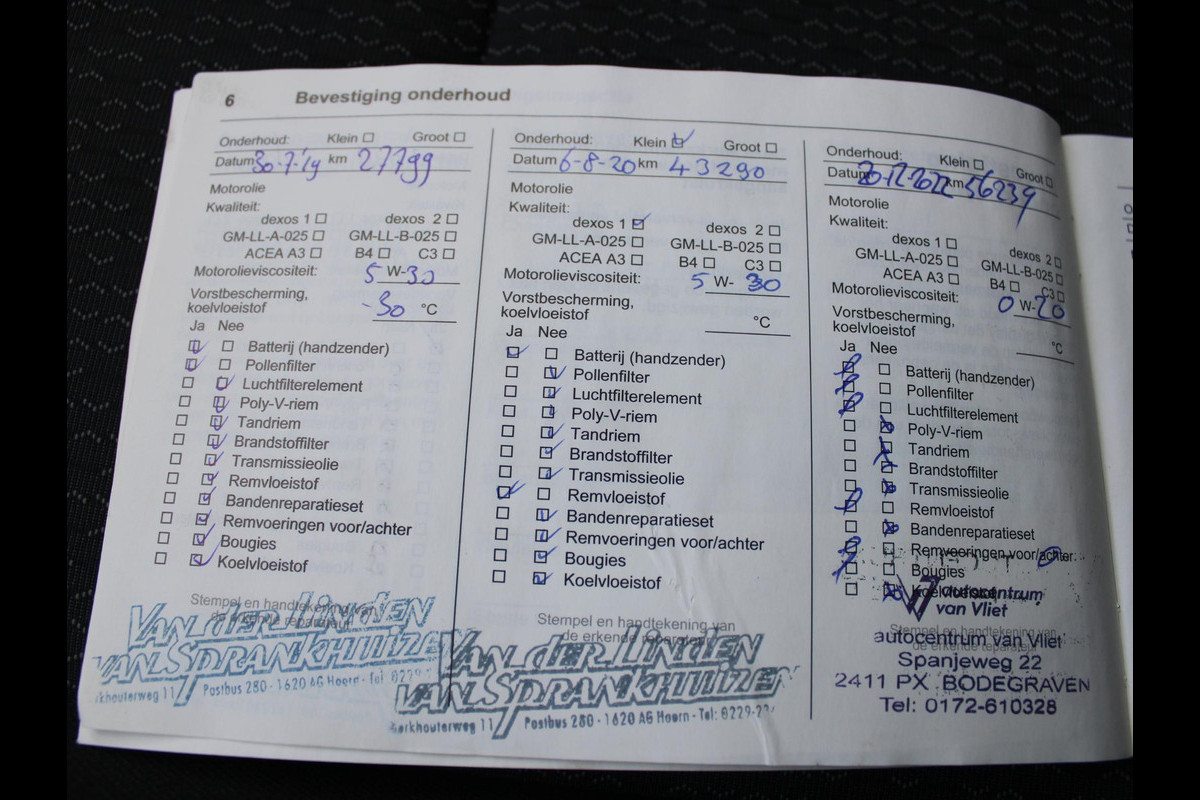 6 Bevestiging onderhoud
Onderhoud: Klein Groot
Datum 30-7-'19 km 27799
Motorolie
Kwaliteit:
dexos 1 dexos 2
GM-LL-A-025 GM-LL-B-025
ACEA A3 B4 C3
Motorolieviscositeit: 5 W-30
Vorstbescherming,
koelvloeistof -30 °C
Ja Nee
Batterij (handzender)
Pollenfilter
Luchtfilterelement
Poly-V-riem
Tandriem
Brandstoffilter
Transmissieolie
Remvloeistof
Bandenreparatieset
Remvoeringen voor/achter
Bougies
Koelvloeistof
Stempel en handtekening van
de erkende reparateur
VAN DER LINDEN
VAN SPRANKHUIZE
rkhouterweg 11 Postbus 280 - 1620 AG Hoorn - Tel: 0229
Onderhoud: Klein Groot
Datum 6-8-20 km 43290
Motorolie
Kwaliteit:
dexos 1 dexos 2
GM-LL-A-025 GM-LL-B-025
ACEA A3 B4 C3
Motorolieviscositeit: 5 W- 30
Vorstbescherming,
koelvloeistof °C
Ja Nee
Batterij (handzender)
Pollenfilter
Luchtfilterelement
Poly-V-riem
Tandriem
Brandstoffilter
Transmissieolie
Remvloeistof
Bandenreparatieset
Remvoeringen voor/achter
Bougies
Koelvloeistof
Stempel en handtekening van
de erkende reparateur
VAN DER LINDEN
VAN SPRANKHUIZEN
erkhouterweg 11 Postbus 280 - 1620 AG Hoorn - Tel: 0229-2
Onderhoud: Klein Groot
Datum 20-12-2022 km 56239
Motorolie
Kwaliteit:
dexos 1 dexos 2
GM-LL-A-025 GM-LL-B-025
ACEA A3 B4 C3
Motorolieviscositeit: 0 W-20
Vorstbescherming,
koelvloeistof °C
Ja Nee
Batterij (handzender)
Pollenfilter
Luchtfilterelement
Poly-V-riem
Tandriem
Brandstoffilter
Transmissieolie
Remvloeistof
Bandenreparatieset
Remvoeringen voor/achter
Bougies
Koelvloeistof
autocentrum
van Vliet
Stempel en handtekening van
de erkende reparateur
autocentrum van Vliet
Spanjeweg 22
2411 PX BODEGRAVEN
Tel: 0172-610328